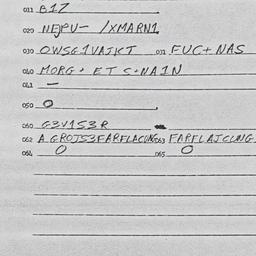 011 B1Z
020 NEPU- /XMARN1
030 OWSG1VAJKT 031 FUC+ NAS
040 MORG+ ET S+NA1N
041 —
050 O
060 G3V1S3R
062 A.GROJS3FARFLACUNG 063 FARFLAJCUNG
064 O 065 O